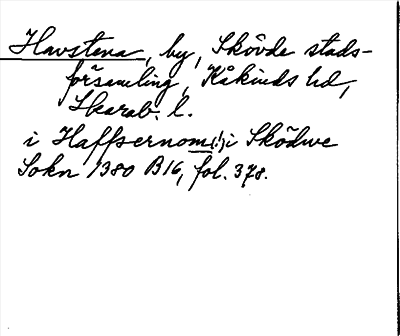 Havstena, by, Skövde stads-
församling, Kåkinds hd,
Skarab. l.
i Haffsernom(!) i Sködwe
Sokn 1380 B16, fol. 378.